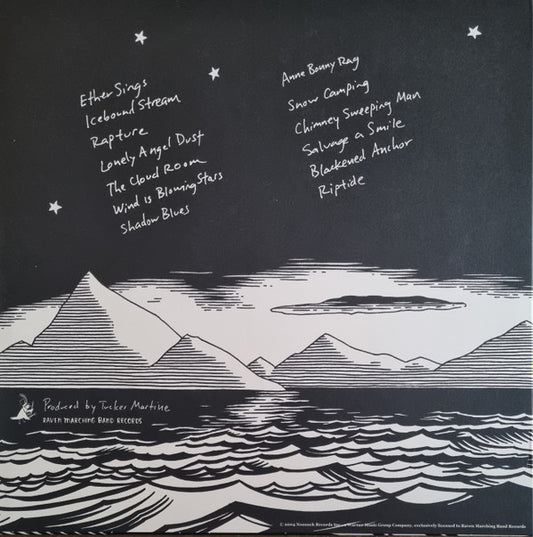 Ether Sings
Icebound Stream
Rapture
Lonely Angel Dust
The Cloud Room
Wind is Blowing Stars
Shadow Blues
Anne Bonny Rag
Snow Camping
Chimney Sweeping Man
Salvage a Smile
Blackened Anchor
Riptide
Produced by Tucker Martine
RAVEN MARCHING BAND RECORDS
Nonesuch Records Inc., a Warner Music Group Company, exclusively licensed to Raven Marching Band Records